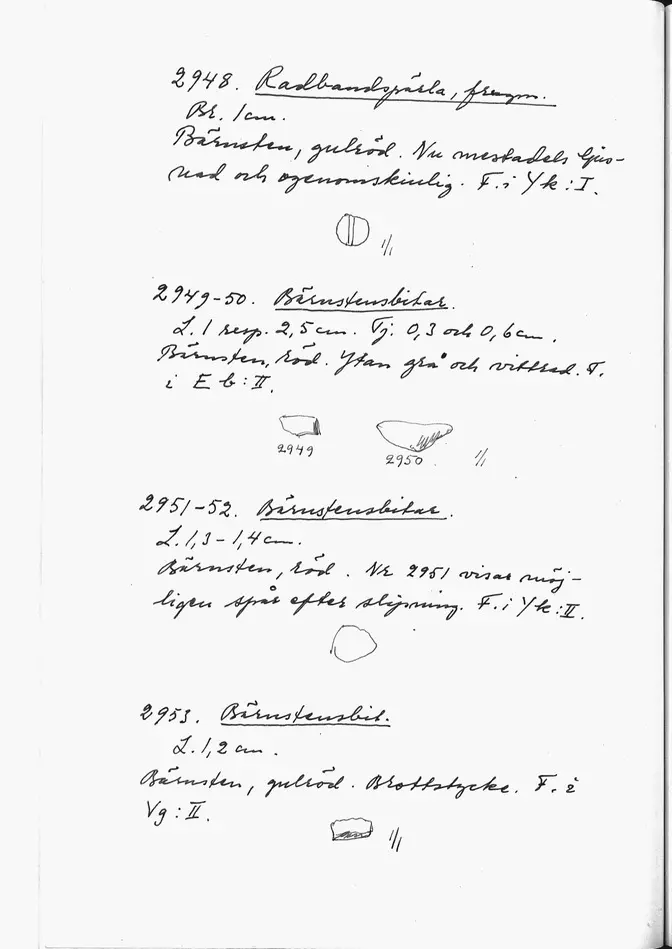 2948. Radbandspärla, fragm.
Br. 1 cm.
Bärnsten, gulröd. Nu mestadels ljus-
nad och ogenomskinlig. F. i Yk : I.
1/1
2949-50. Bärnstensbitar.
L. 1 resp. 2,5 cm. Tj. 0,3 och 0,6 cm.
Bärnsten, röd. Ytan grå och vittrad. F.
i Eb : II.
2949 2950 1/1
2951-52. Bärnstensbitar.
L. 1,3 - 1,4 cm.
Bärnsten, röd. Nr 2951 visar möj-
ligen spår efter slipning. F. i Yk : II.
2953. Bärnstensbit.
L. 1,2 cm.
Bärnsten, gulröd. Brottstycke. F. i
Vg : II.
1/1